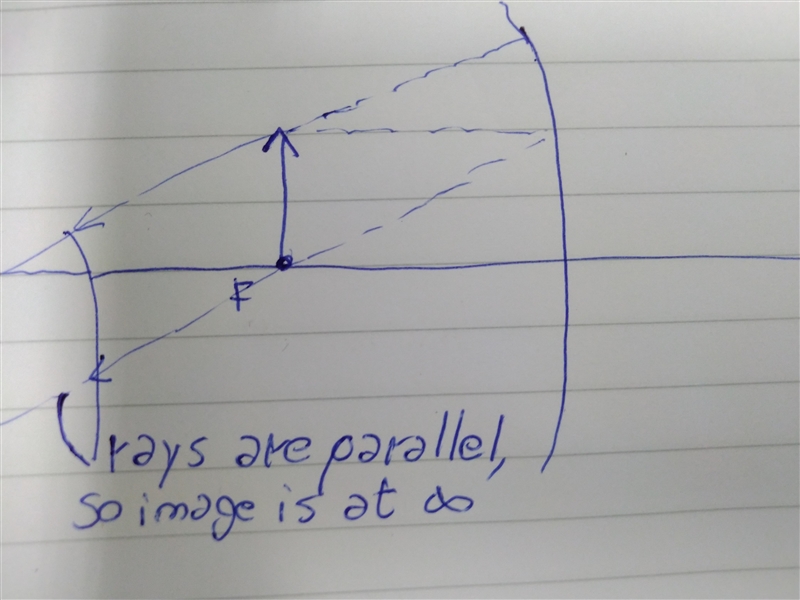 F
rays are parallel,
so image is at ∞